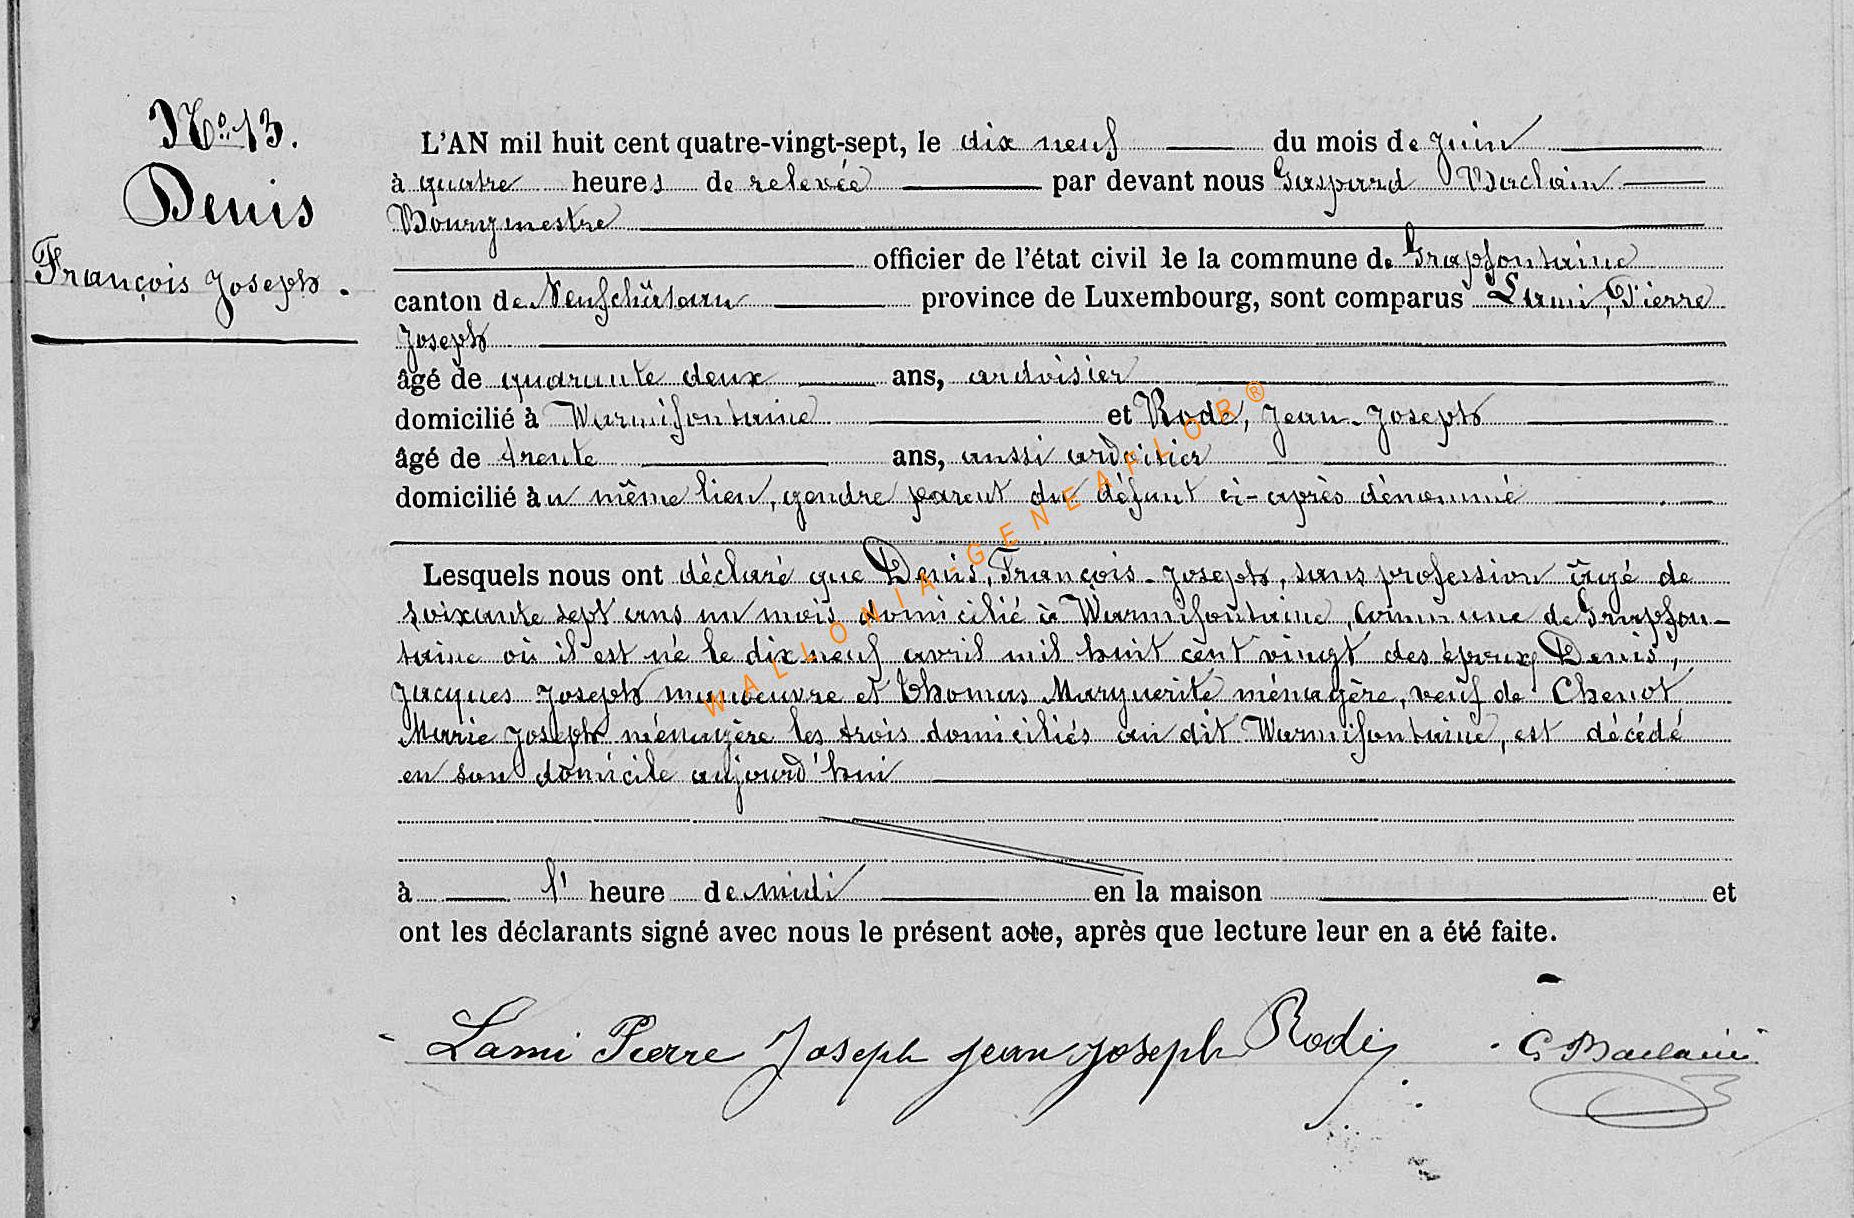 No. 13.
Denis
François Joseph.
L'AN mil huit cent quatre-vingt-sept, le dix neuf du mois de Juin
à quatre heures de relevée par devant nous Gaspard Baclain
Bourgmestre
officier de l'état civil de la commune de Grapfontaine
canton de Neufchâteau province de Luxembourg, sont comparus Lami, Pierre
Joseph
âgé de quarante deux ans, ardoisier
domicilié à Warmifontaine et Rode, Jean-Joseph
âgé de trente ans, aussi ardoisier
domicilié au même lieu, gendre parent du défunt ci-après dénommé
Lesquels nous ont déclaré que Denis, François-Joseph, sans profession âgé de
soixante sept ans un mois domicilié à Warmifontaine, commune de Grapfon-
taine où il est né le dix neuf avril mil huit cent vingt des époux Denis,
Jacques Joseph manœuvre et Thomas Marguerite ménagère, veuf de Chenot
Marie Joseph ménagère les trois domiciliés au dit Warmifontaine, est décédé
en son domicile aujourd'hui
à l' heure de midi en la maison et
ont les déclarants signé avec nous le présent acte, après que lecture leur en a été faite.
Lami Pierre Joseph Jean Joseph Rode G Baclain
WALLONIA-GENEAFLOR®